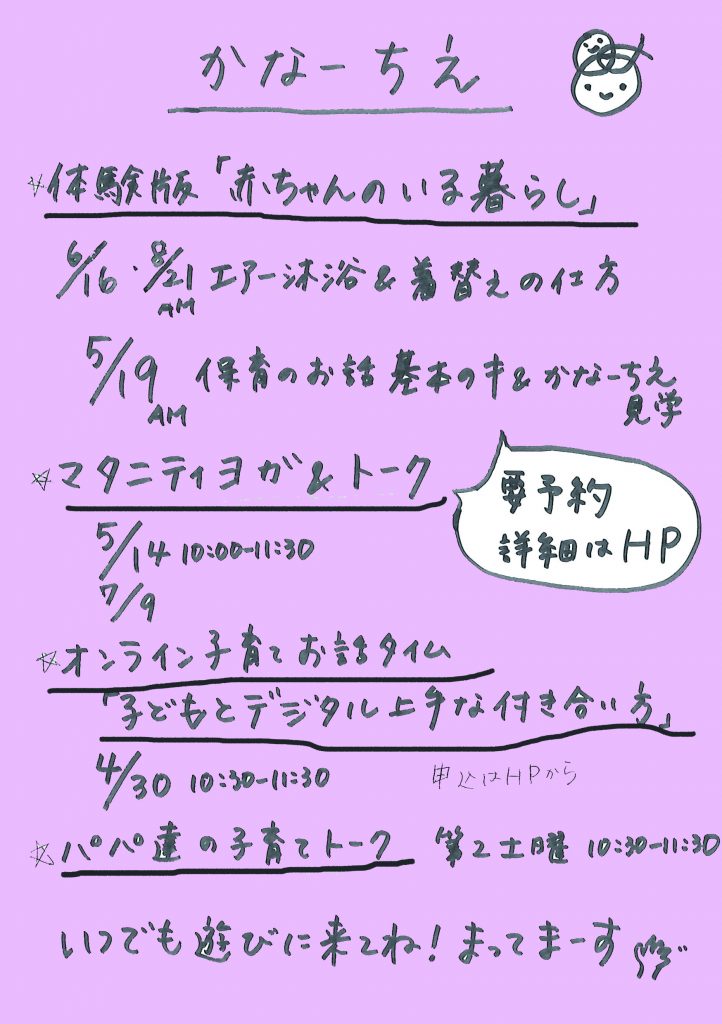 かなーちえ
☆体験版「赤ちゃんのいる暮らし」
6/16・8/21 AM エアー沐浴&着替えの仕方
5/19 AM 保育のお話 基本のキ&かなーちえ
見学
☆マタニティヨガ&トーク
5/14 10:00-11:30
7/9
要予約
詳細はHP
☆オンライン子育てお話タイム
「子どもとデジタル上手な付き合い方」
4/30 10:30-11:30 申込はHPから
☆パパ達の子育てトーク 第2土曜 10:30-11:30
いつでも遊びに来てね!まってまーす